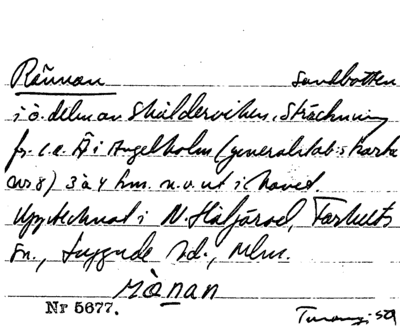 Rännan Sandbotten
i ö. delen av Skälderviken. Sträckning
fr. c:a Ä i Ängelholm (generalstab:s karta
nr 8) 3 à 4 km. n.v. ut i havet.
Upptecknat i N. Häljaröd, Farhults
sn., Luggude hd., Mlm.
Nr 5677.